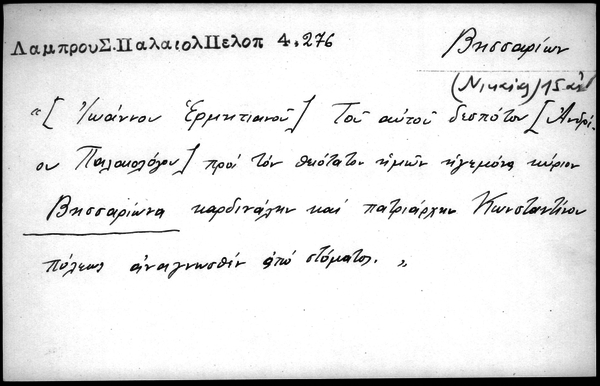 ΛαμπρουΣ.ΠαλαιολΠελοπ 4,276
Βησσαρίων
(Νικαίας) 15 αἰ
"[Ἰωάννου Ἑρμητιανοῦ] Τοῦ αὐτοῦ δεσπότου [Ἀνδρέ-
ου Παλαιολόγου] πρὸς τὸν θειότατον ἡμῶν ἡγεμόνα κύριον
Βησσαρίωνα καρδινάλην καὶ πατριάρχην Κωνσταντίνου
πόλεως ἀναγνωσθὲν ἀπὸ στόματος."